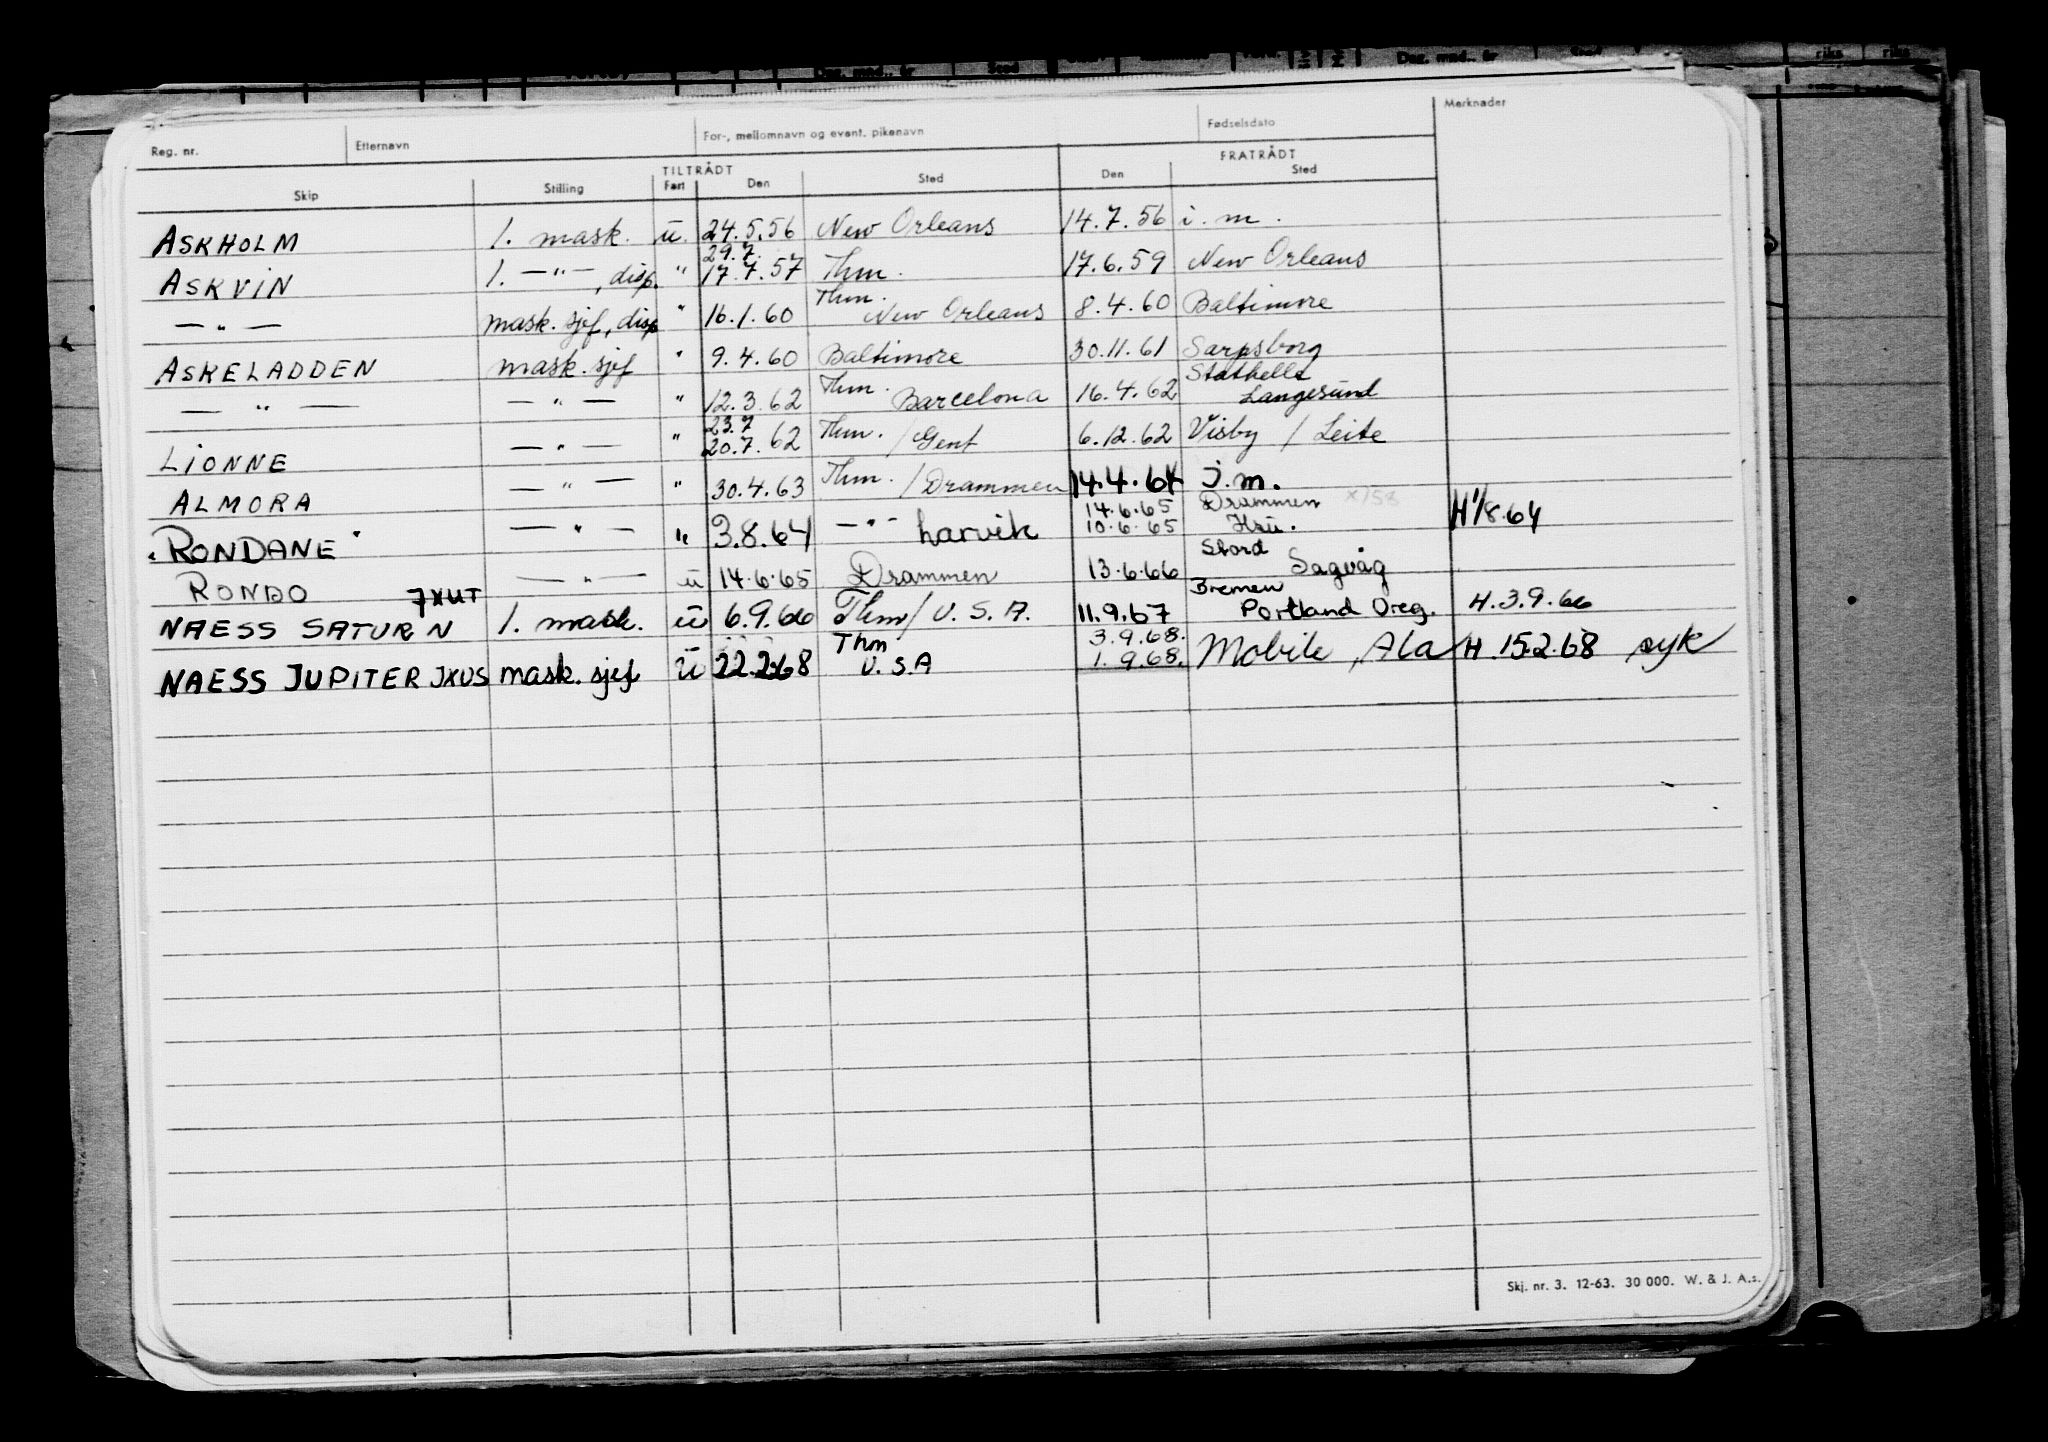 Reg. nr. Etternavn For-, mellomnavn og event. pikenavn Fødselsdato Merknader
TILTRÅDT FRATRÅDT
Skip Stilling Fart Den Sted Den Sted
ASKHOLM 1. mask. ü. 24.5.56 New Orleans 14.7.56 i. m.
29.7.
ASKVIN 1. — " —, disp. " 17.7.57 Thm. 17.6.59 New Orleans
Thm.
— " — mask. sjef, disp " 16.1.60 New Orleans 8.4.60 Baltimore
ASKELADDEN mask. sjef " 9.4.60 Baltimore 30.11.61 Sarpsborg
Thm. Stathelle
— " — — " — " 12.3.62 Barcelona 16.4.62 Langesund
23.7
LIONNE — " — " 20.7.62 Thm. / Gent 6.12.62 Visby / Leite
ALMORA — " — " 30.4.63 Thm. / Drammen 14.4.64 i.m.
14.6.65 Drammen
"RONDANE" — " — " 3.8.64 — " — Larvik 10.6.65 H 1/8.64
Stord
RONDO — " — ü 14.6.65 Drammen 13.6.66 Sagvåg
JXUT Bremen
NAESS SATURN 1. mask. ü 6.9.66 Thm / U.S.A. 11.9.67 Portland Oreg. H. 3.9.66
Thm 3.9.68.
NAESS JUPITER JXUS mask. sjef ü 22.2.68 U.S.A 1.9.68. Mobile, Ala H. 15.2.68 syk
Skj. nr. 3. 12-63. 30 000. W. & J. A.s.